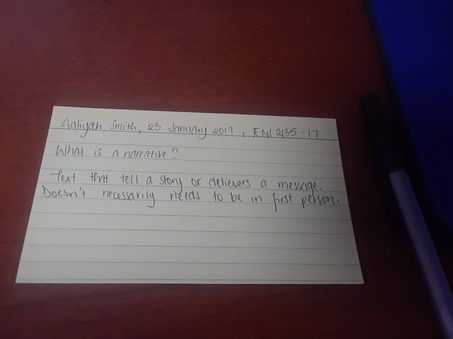 Aaliyah Smith, 23 January 2019, ENC2135-17
What is a narrative?
Text that tell a story or delievers a message.
Doesn't necessarily needs to be in first person.